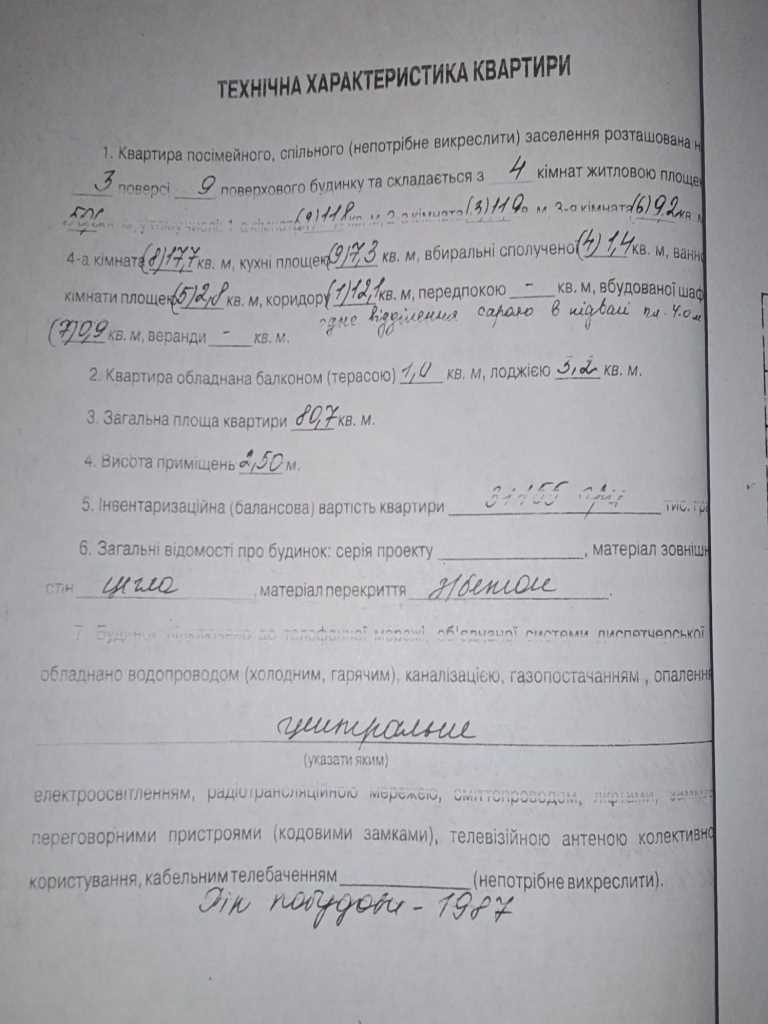 ТЕХНІЧНА ХАРАКТЕРИСТИКА КВАРТИРИ
1. Квартира посімейного, спільного (непотрібне викреслити) заселення розташована н
3 поверсі 9 поверхового будинку та складається з 4 кімнат житловою площею
(3) 11,9 м, 3-а кімната (6) 9,2 кв. м
4-а кімната (8) 17,7 кв. м, кухні площею (9) 7,3 кв. м, вбиральні сполученої (4) 1,4 кв. м, ванно
кімнати площею (5) 2,8 кв. м, коридору (1) 12,1 кв. м, передпокою - кв. м, вбудованої шаф
одне відділення сараю в підвалі пл. 4.0 м
(7) 0,9 кв. м, веранди - кв. м.
2. Квартира обладнана балконом (терасою) 1,0 кв. м, лоджією 3,2 кв. м.
3. Загальна площа квартири 80,7 кв. м.
4. Висота приміщень 2,50 м.
5. Інвентаризаційна (балансова) вартість квартири тис. гр
6. Загальні відомості про будинок: серія проекту , матеріал зовнішн
стін цегла , матеріал перекриття з/бетон .
7. Будинок до телефонної мережі, об'єднаної системи диспетчерської
обладнано водопроводом (холодним, гарячим), каналізацією, газопостачанням , опаленн
центральне
(указати яким)
електроосвітленням, радіотрансляційною мережею, сміттєпроводом, ліфтами,
переговорними пристроями (кодовими замками), телевізійною антеною колективно
користування, кабельним телебаченням (непотрібне викреслити).
Рік побудови - 1987